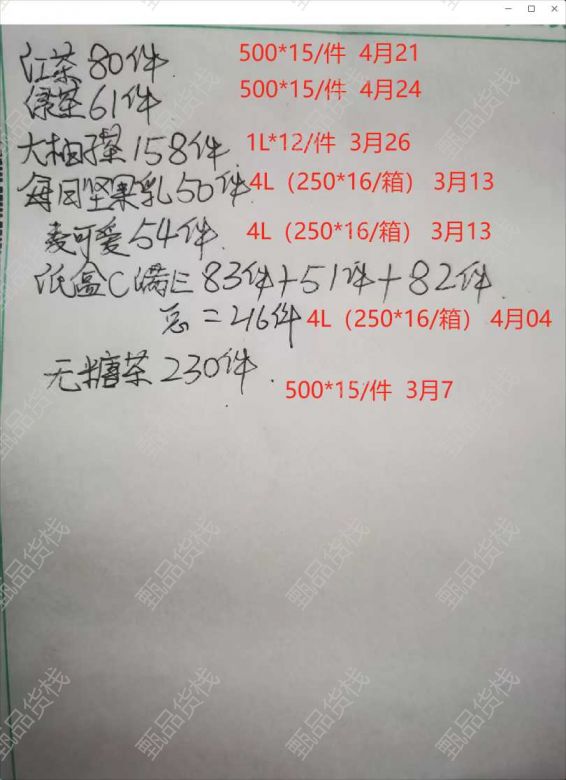 红茶 80件 500*15/件 4月21
绿茶 61件 500*15/件 4月24
大柚子茶 158件 1L*12/件 3月26
每日坚果乳 50件 4L（250*16/箱） 3月13
麦可爱 54件 4L（250*16/箱） 3月13
纸盒C满E 83件+51件+82件
总=216件 4L（250*16/箱） 4月04
无糖茶 230件
500*15/件 3月7
甄品货栈
甄品货栈
甄品货栈
甄品货栈
甄品货栈
甄品货栈
甄品货栈
甄品货栈
甄品货栈
甄品货栈
甄品货栈
甄品货栈